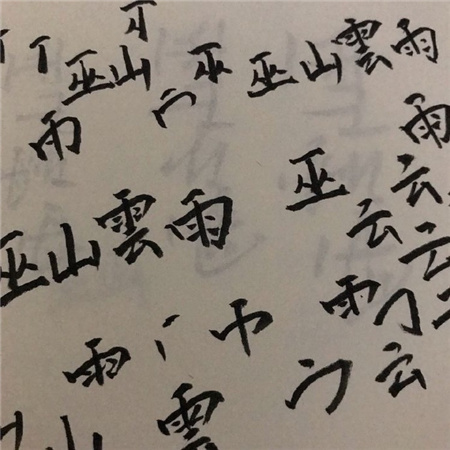 巫山 巫 巫山雲雨
雨 雨
巫 云
巫山雲雨 云 云
雨 巾 雨
云
山 雲